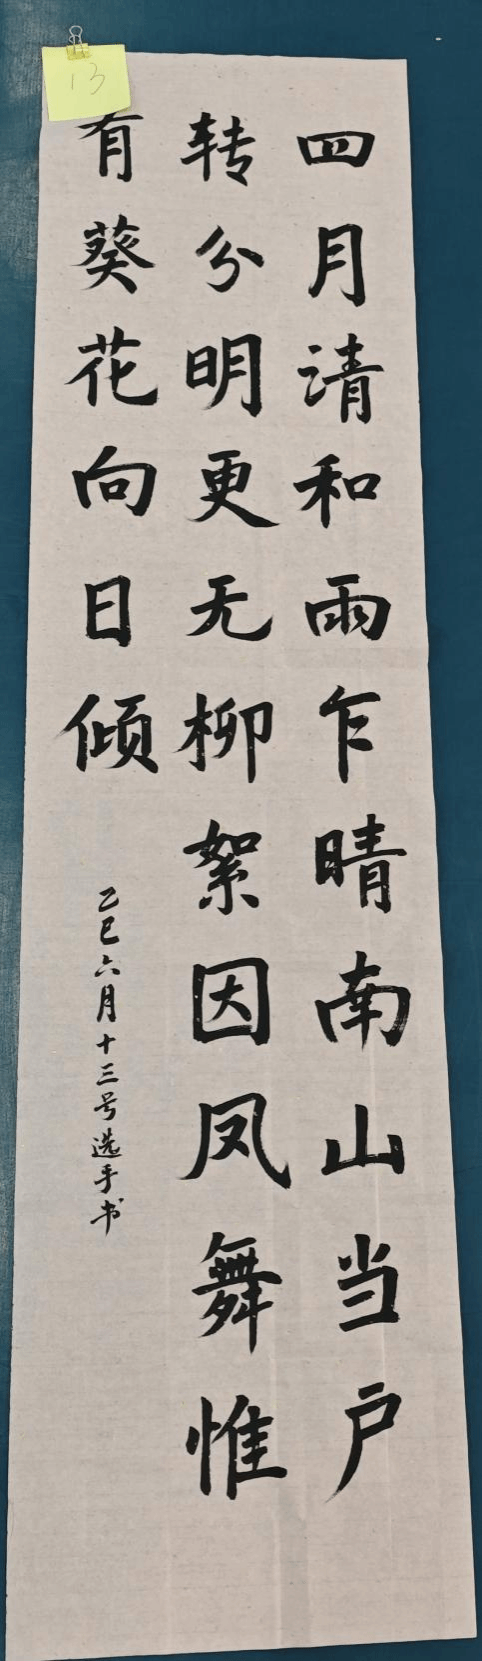 13
四月清和雨乍晴南山当户
转分明更无柳絮因凤舞惟
有葵花向日倾
乙巳六月十三号选手书